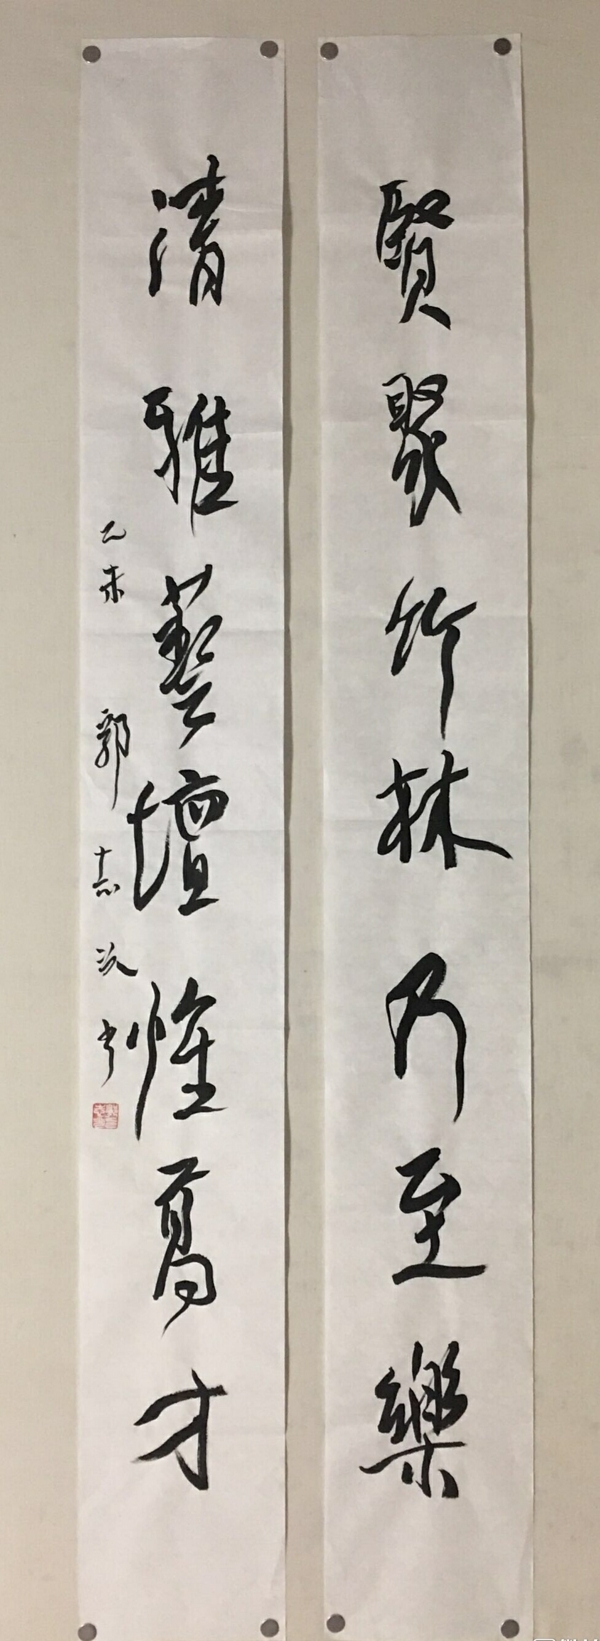 賢聚竹林乃至樂
清雅藝壇惟高才
乙未 郭志 书